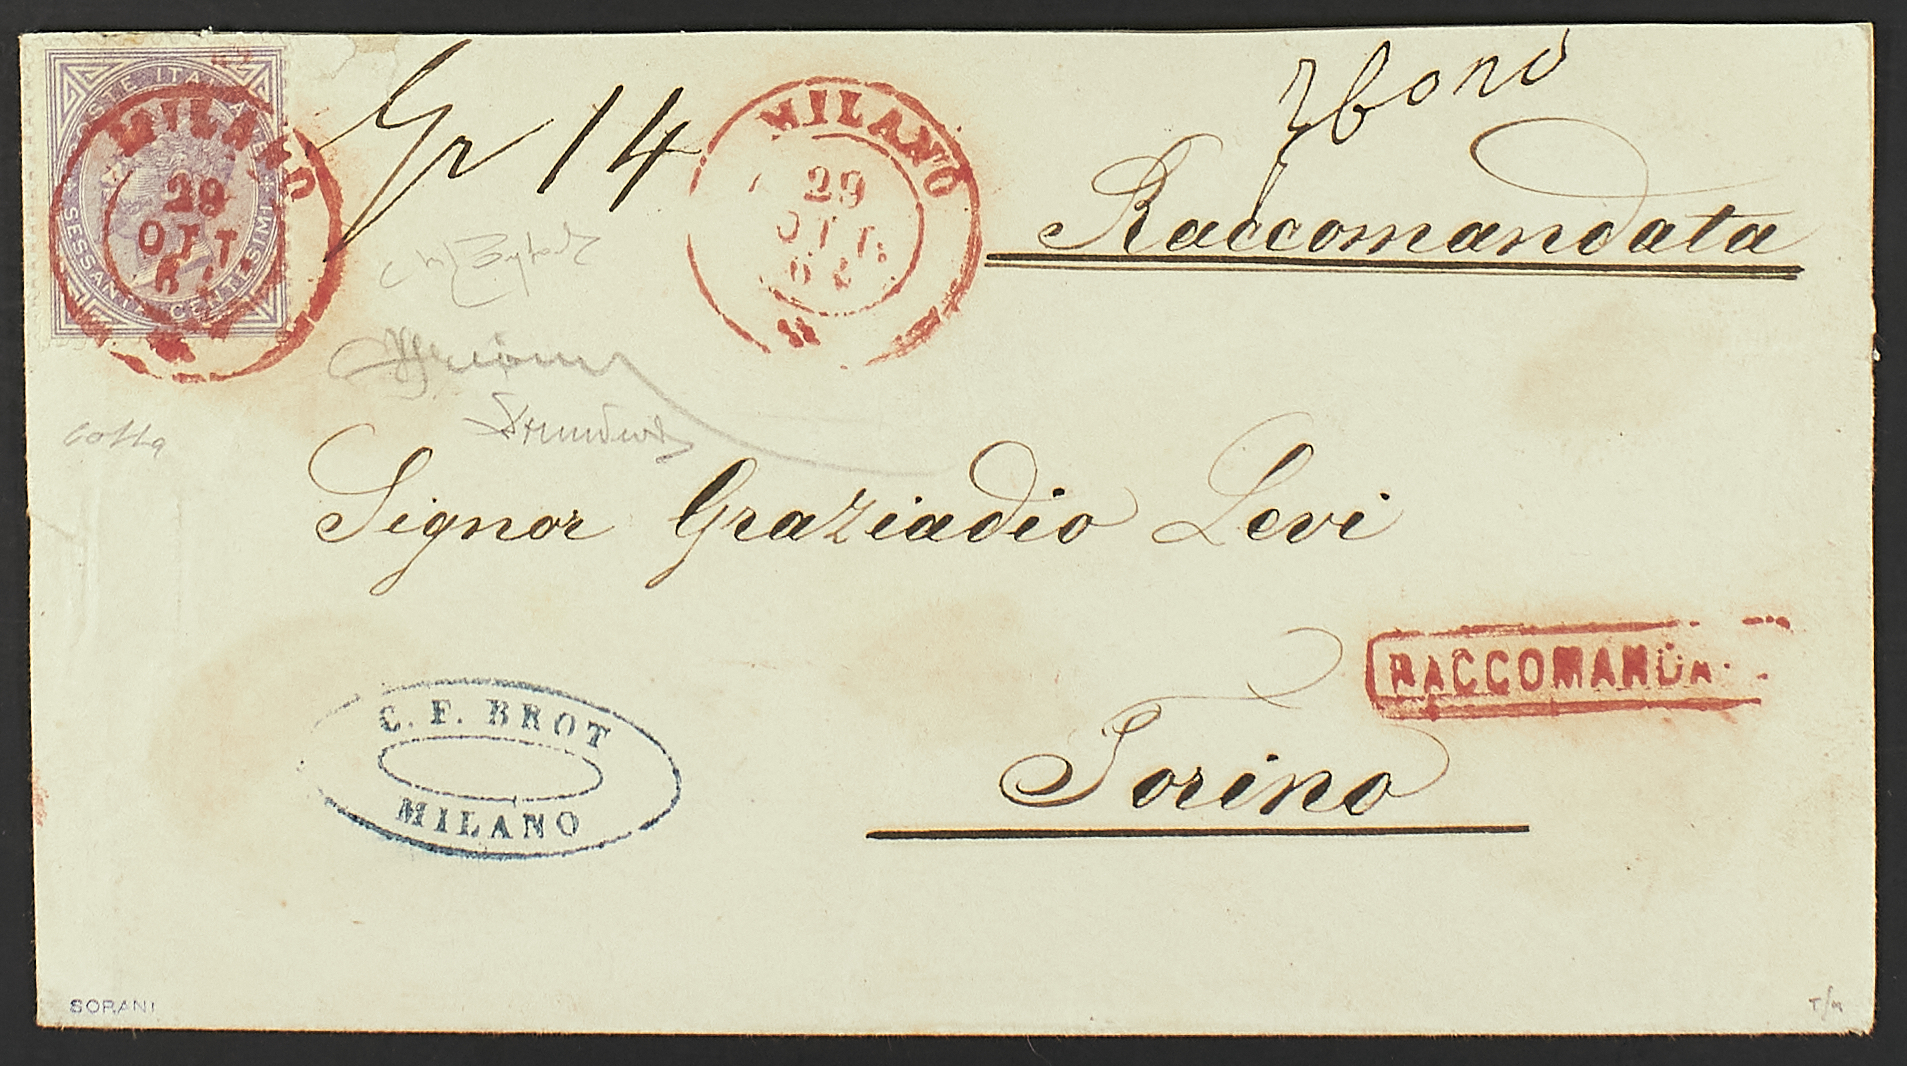 POSTE ITALIANE
SESSANTA CENTESIMI
MILANO
29
OTT
Gr 14
MILANO
29
OTT
Raccomandata
Signor Graziadio Levi
RACCOMANDA
Torino
C. F. BROT
MILANO
SORANI